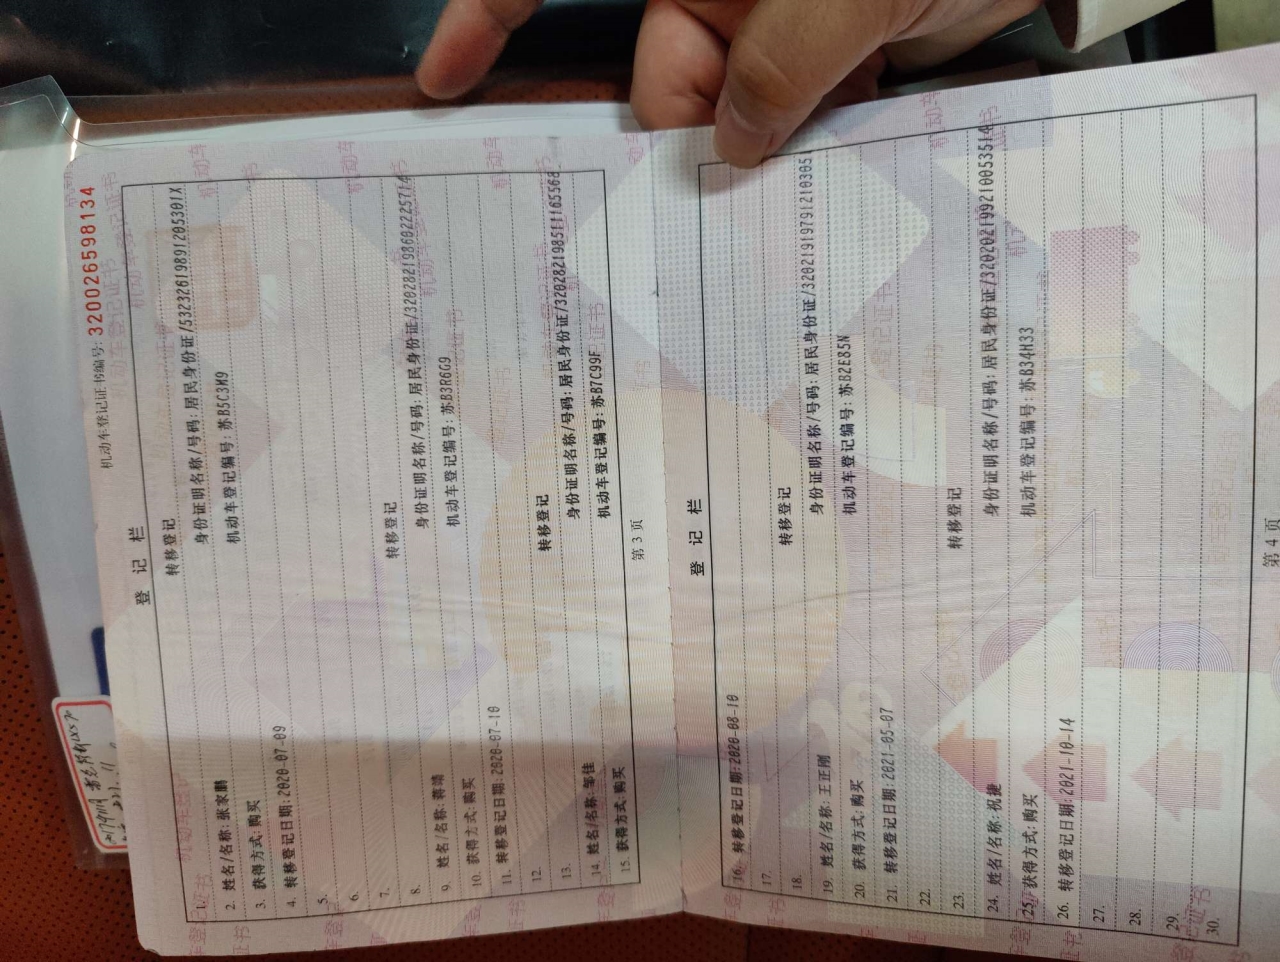 机动车登记证书编号: 320026598134
登 记 栏
1. 转移登记
2. 姓名/名称: 张家鹏 身份证明名称/号码: 居民身份证/53232619891205301X
3. 获得方式: 购买 机动车登记编号: 苏B5C3M9
4. 转移登记日期: 2020-07-09
5.
6.
7.
8. 转移登记
9. 姓名/名称: 蒋靖 身份证明名称/号码: 居民身份证/320282198602225714
10. 获得方式: 购买 机动车登记编号: 苏B3R6G9
11. 转移登记日期: 2020-07-10
12.
13. 转移登记
14. 姓名/名称: 邹佳 身份证明名称/号码: 居民身份证/320282198511165568
15. 获得方式: 购买 机动车登记编号: 苏B7C99F
第 3 页
登 记 栏
16. 转移登记日期: 2020-08-10
17.
18. 转移登记
19. 姓名/名称: 王正刚 身份证明名称/号码: 居民身份证/32021919791210305
20. 获得方式: 购买 机动车登记编号: 苏B2E85N
21. 转移登记日期: 2021-05-07
22.
23. 转移登记
24. 姓名/名称: 祝捷 身份证明名称/号码: 居民身份证/320202199210053514
25. 获得方式: 购买 机动车登记编号: 苏B34H33
26. 转移登记日期: 2021-10-14
27.
28.
29.
30.
第 4 页